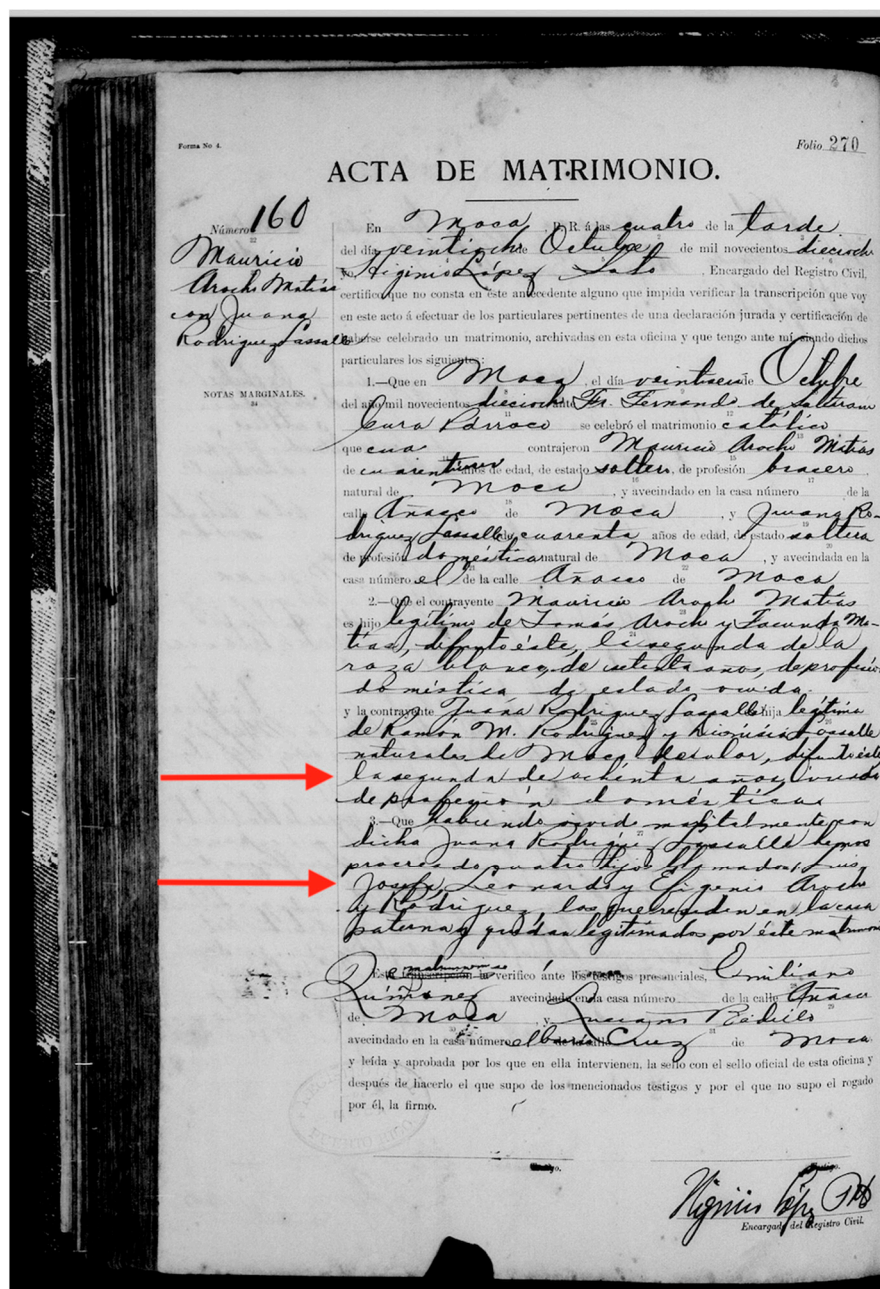 Forma No 4.
Folio 270
ACTA DE MATRIMONIO.
Número 160
Mauricio
Arocho Matías
con Juana
Rodriguez Lassalle
NOTAS MARGINALES.
En Moca, P. R. á las cuatro de la tarde
del día veintiocho de Octubre de mil novecientos dieciocho
yo, Higinio López Soto, Encargado del Registro Civil,
certifico que no consta en este antecedente alguno que impida verificar la transcripción que voy
en este acto á efectuar de los particulares pertinentes de una declaración jurada y certificación de
haberse celebrado un matrimonio, archivadas en esta oficina y que tengo ante mí, siendo dichos
particulares los siguientes:
1.—Que en Moca, el día de Octubre
del año mil novecientos dieciocho ante Fr. Fernando de
Cura Párroco se celebró el matrimonio católico
que contrajeron Mauricio Arocho Matías
de años de edad, de estado soltero, de profesión bracero,
natural de Moca, y avecindado en la casa número de la
calle Añasco de Moca, y Juana Ro-
driguez Lassalle de cuarenta años de edad, de estado soltera
de profesión doméstica natural de Moca, y avecindada en la
casa número el de la calle Añasco de Moca
2.—Que el contrayente Mauricio Arocho Matías
es hijo legítimo de Tomás Arocho y Facunda Ma-
tías, difunto éste, la segunda de la
raza blanca, de setenta años, de profesión
doméstica de estado viuda.
y la contrayente Juana Rodriguez Lassalle es hija legítima
de Ramón M. Rodriguez y Dionisia Lassalle
naturales de Moca de color, difunto éste
la segunda de ochenta años, viuda
de profesión doméstica
3.—Que habiendo vivido maritalmente con
dicha Juana Rodriguez Lassalle hemos
procreado cuatro hijos llamados, Luis
Josefa, Leonarda y Efigenio Arocho
y Rodriguez, los que residen en la casa
paterna y quedan legitimados por éste matrimonio
Este matrimonio se verificó ánte los testigos presenciales, Emiliano
Quiñonez avecindado en la casa número de la calle Añasco
de Moca y Luciano
avecindado en la casa número el barrio Cruz de Moca
y leída y aprobada por los que en ella intervienen, la sello con el sello oficial de esta oficina y
después de hacerlo el que supo de los mencionados testigos y por el que no supo el rogado
por él, la firmo.
Higinio López Soto
Encargado del Registro Civil.